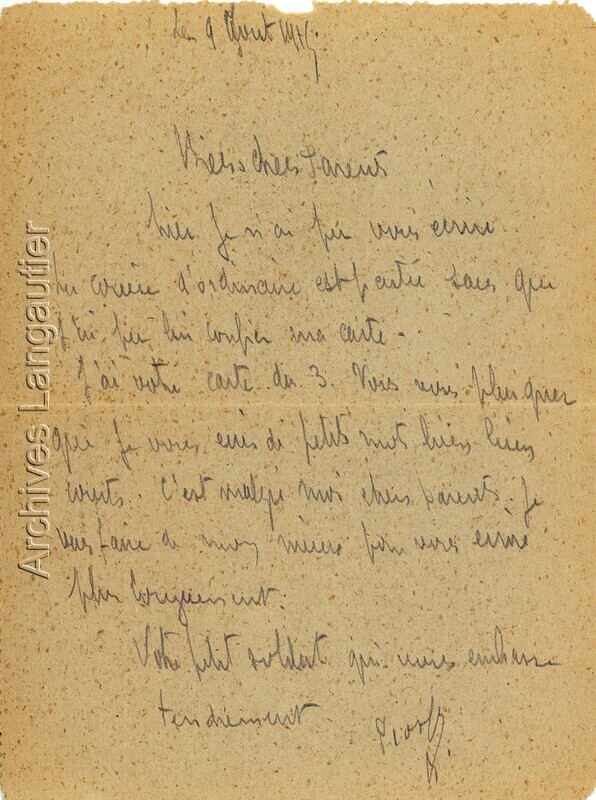 Le 9 Août
Bien chers Parents
Hier Je n'ai pu vous écrire.
d'ordinaire est partie sans que
J'ai pu lui confier ma carte.
J'ai votre carte du 3. Vous vous plaignez
que Je vous écris de petits mot bien bien
courts. C'est malgré moi chers parents. Je
vais faire de mon mieux pour vous écrire
plus longuement.
Votre petit soldat qui vous embrasse
tendrement
Archives Langautier